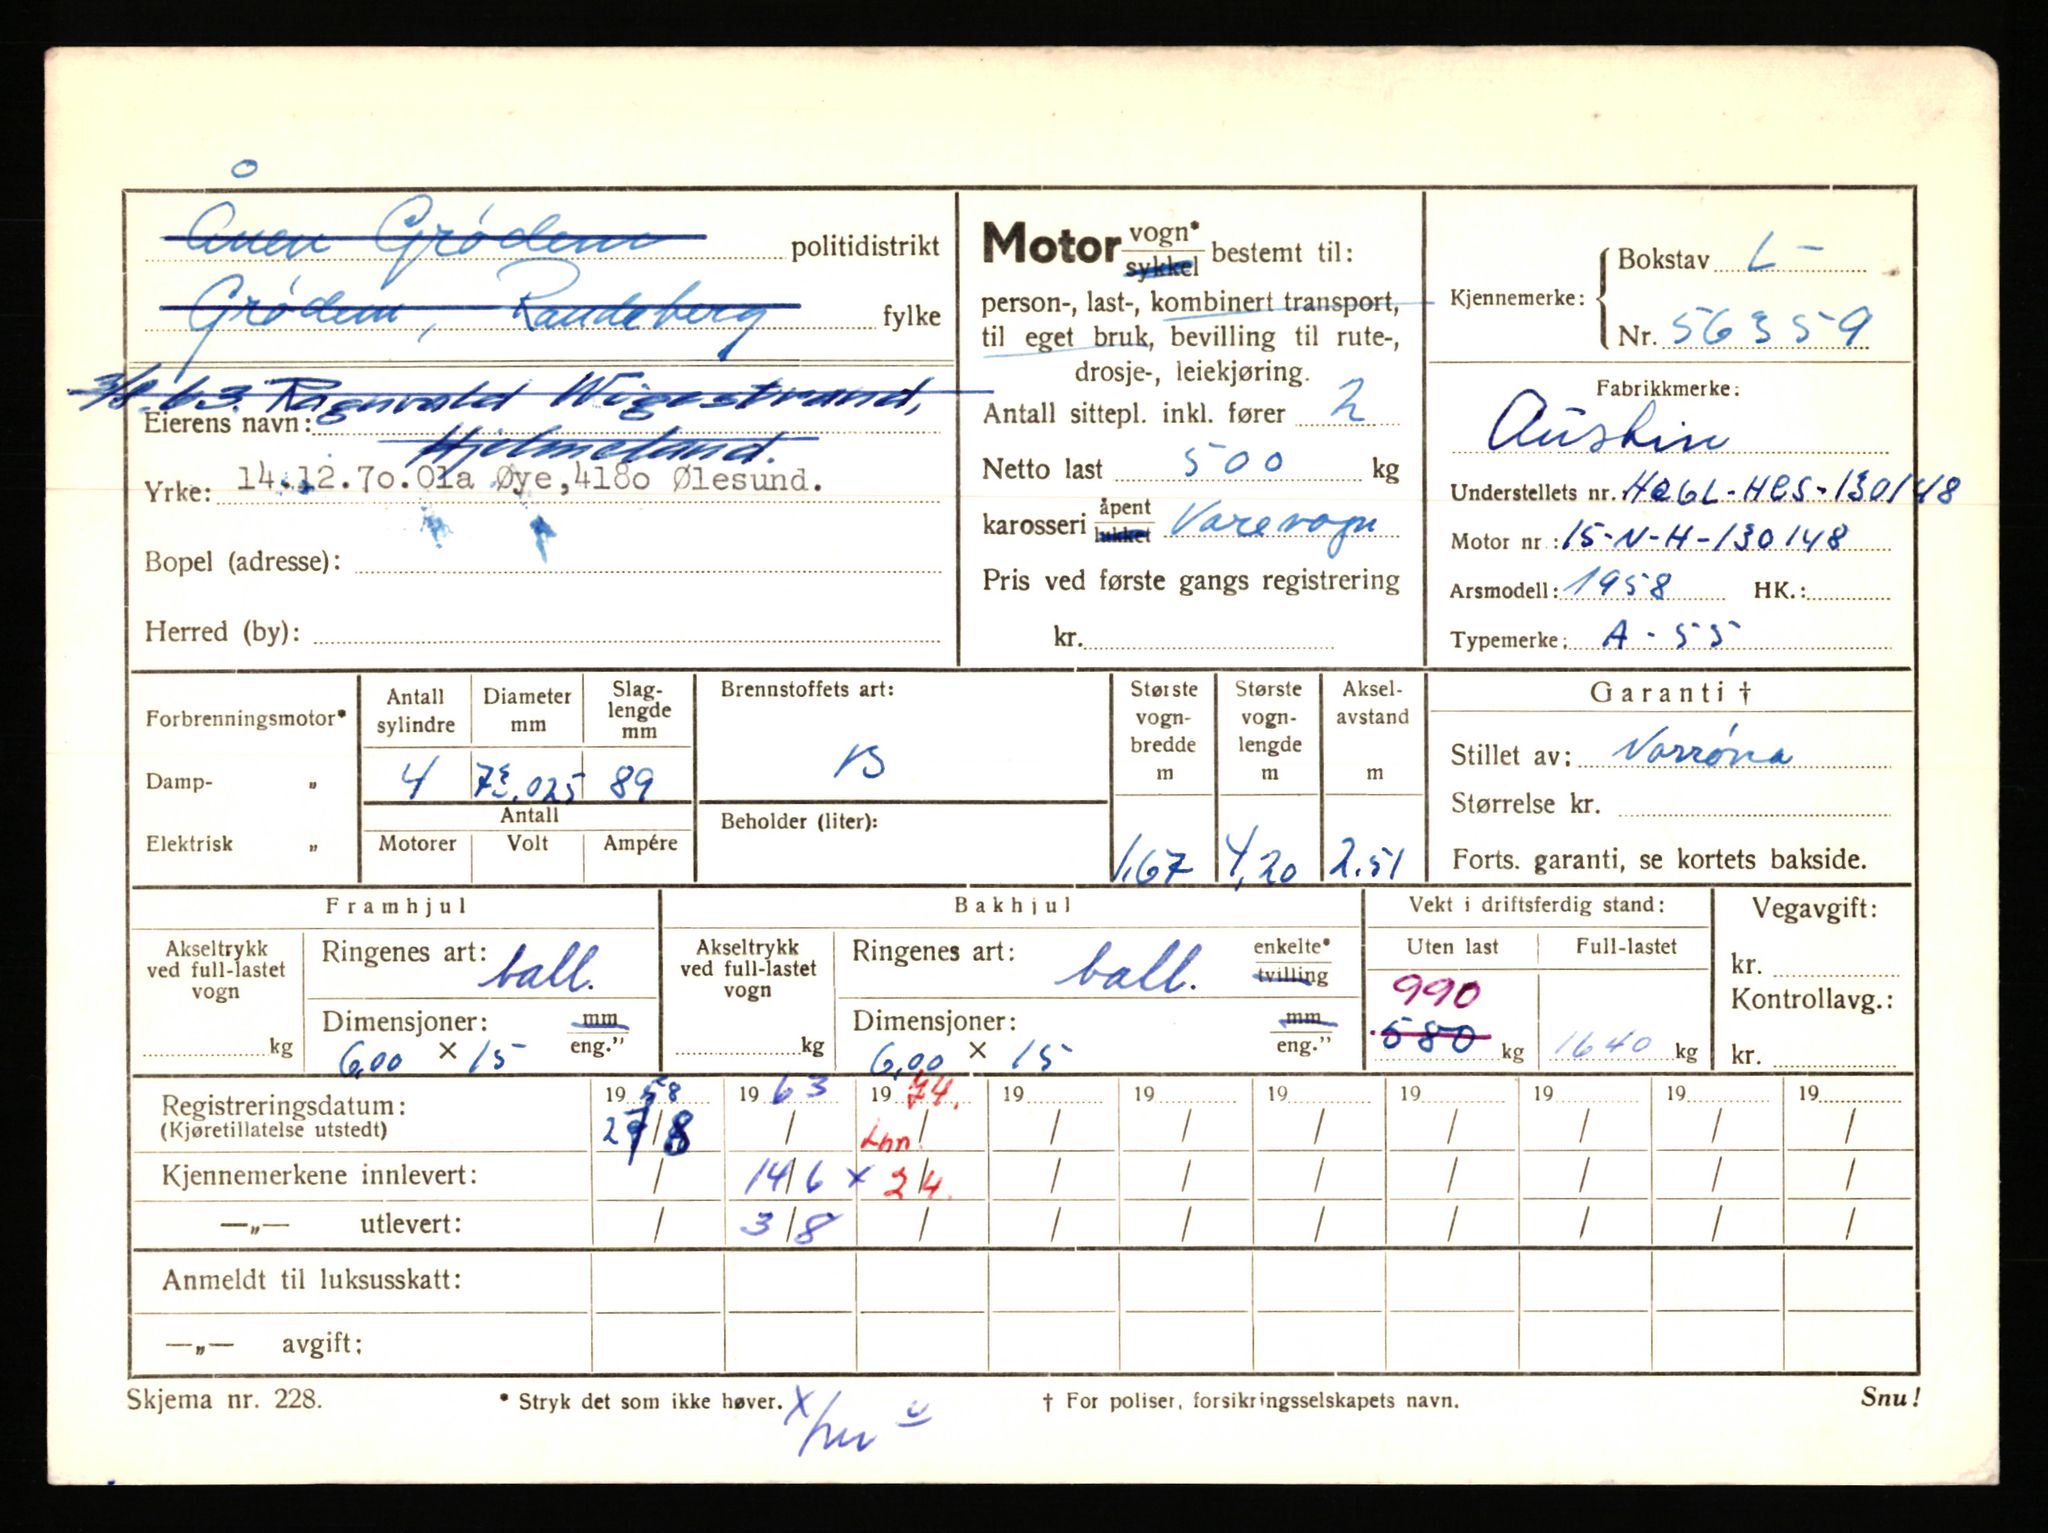 Ånen Grødem politidistrikt
Grødem, Randeberg fylke
3/8.63. Ragnvald Wigestrand,
Eierens navn:
Hjelmeland.
Yrke: 14.12.70.Ola Øye,4180 Ølesund.
Bopel (adresse):
Herred (by):
Motor vogn* sykkel bestemt til:
person-, last-, kombinert transport,
til eget bruk, bevilling til rute-,
drosje-, leiekjøring.
Antall sittepl. inkl. fører 2
Netto last 500 kg
karosseri åpent lukket Varevogn
Pris ved første gangs registrering
kr.
Kjennemerke:
Bokstav L-
Nr. 56359
Fabrikkmerke:
Austin
Understellets nr. HAGL-HCS-130148
Motor nr.: 15-N-H-130148
Arsmodell: 1958 HK.:
Typemerke: A-55
Forbrenningsmotor*
Damp- „
Elektrisk „
Antall sylindre
Diameter mm
Slag-lengde mm
4 73,025 89
Antall
Motorer Volt Ampére
Brennstoffets art:
B
Beholder (liter):
Største vogn-bredde m
Største vogn-lengde m
Aksel-avstand m
1,67 4,20 2.51
Garanti †
Stillet av: Norrøna
Størrelse kr.
Forts. garanti, se kortets bakside.
Framhjul
Akseltrykk ved full-lastet vogn
kg
Ringenes art: ball.
Dimensjoner: mm eng."
6,00 × 15
Bakhjul
Akseltrykk ved full-lastet vogn
kg
Ringenes art: ball. enkelte* tvilling
Dimensjoner: mm eng."
6,00 × 15
Vekt i driftsferdig stand:
Uten last Full-lastet
990
580 kg 1640 kg
Vegavgift:
kr.
Kontrollavg.:
kr.
Registreringsdatum: 19 58 19 63 19 74. 19 19 19 19 19 19 19
(Kjøretillatelse utstedt) / 8 / Inn. / / / / / / / /
Kjennemerkene innlevert: / 14/6 x 2/4. / / / / / / /
—„— utlevert: / 3/8 / / / / / / / /
Anmeldt til luksusskatt:
—„— avgift:
Skjema nr. 228. * Stryk det som ikke høver. † For poliser, forsikringsselskapets navn. Snu!
x